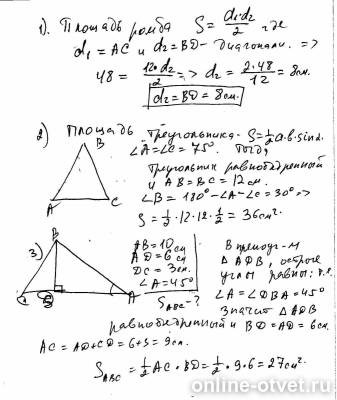 1). Площадь ромба S = d₁·d₂/2, где
d₁ = AC и d₂ = BD - диагонали. =>
48 = 12·d₂/2 => d₂ = 2·48/12 = 8см.
d₂ = BD = 8см.
2) Площадь треугольника - S = ½ a·b·sin α.
∠A = ∠C = 75°. Тогда
треугольник равнобедренный
и AB = BC = 12см.
∠B = 180° - ∠A - ∠C = 30° =>
S = ½·12·12·½ = 36см²
B
A
C
3)
B
C
A
AB = 10см
AD = 6см
DC = 3см.
∠A = 45°
S ABC - ?
В прямоуг-м
△ ADB, острые
углы равны: т.е.
∠A = ∠DBA = 45°
значит △ADB
равнобедренный и BD = AD = 6см.
AC = AD + CD = 6 + 3 = 9см.
S ABC = ½ AC · BD = ½ · 9 · 6 = 27см²
online-otvet.ru